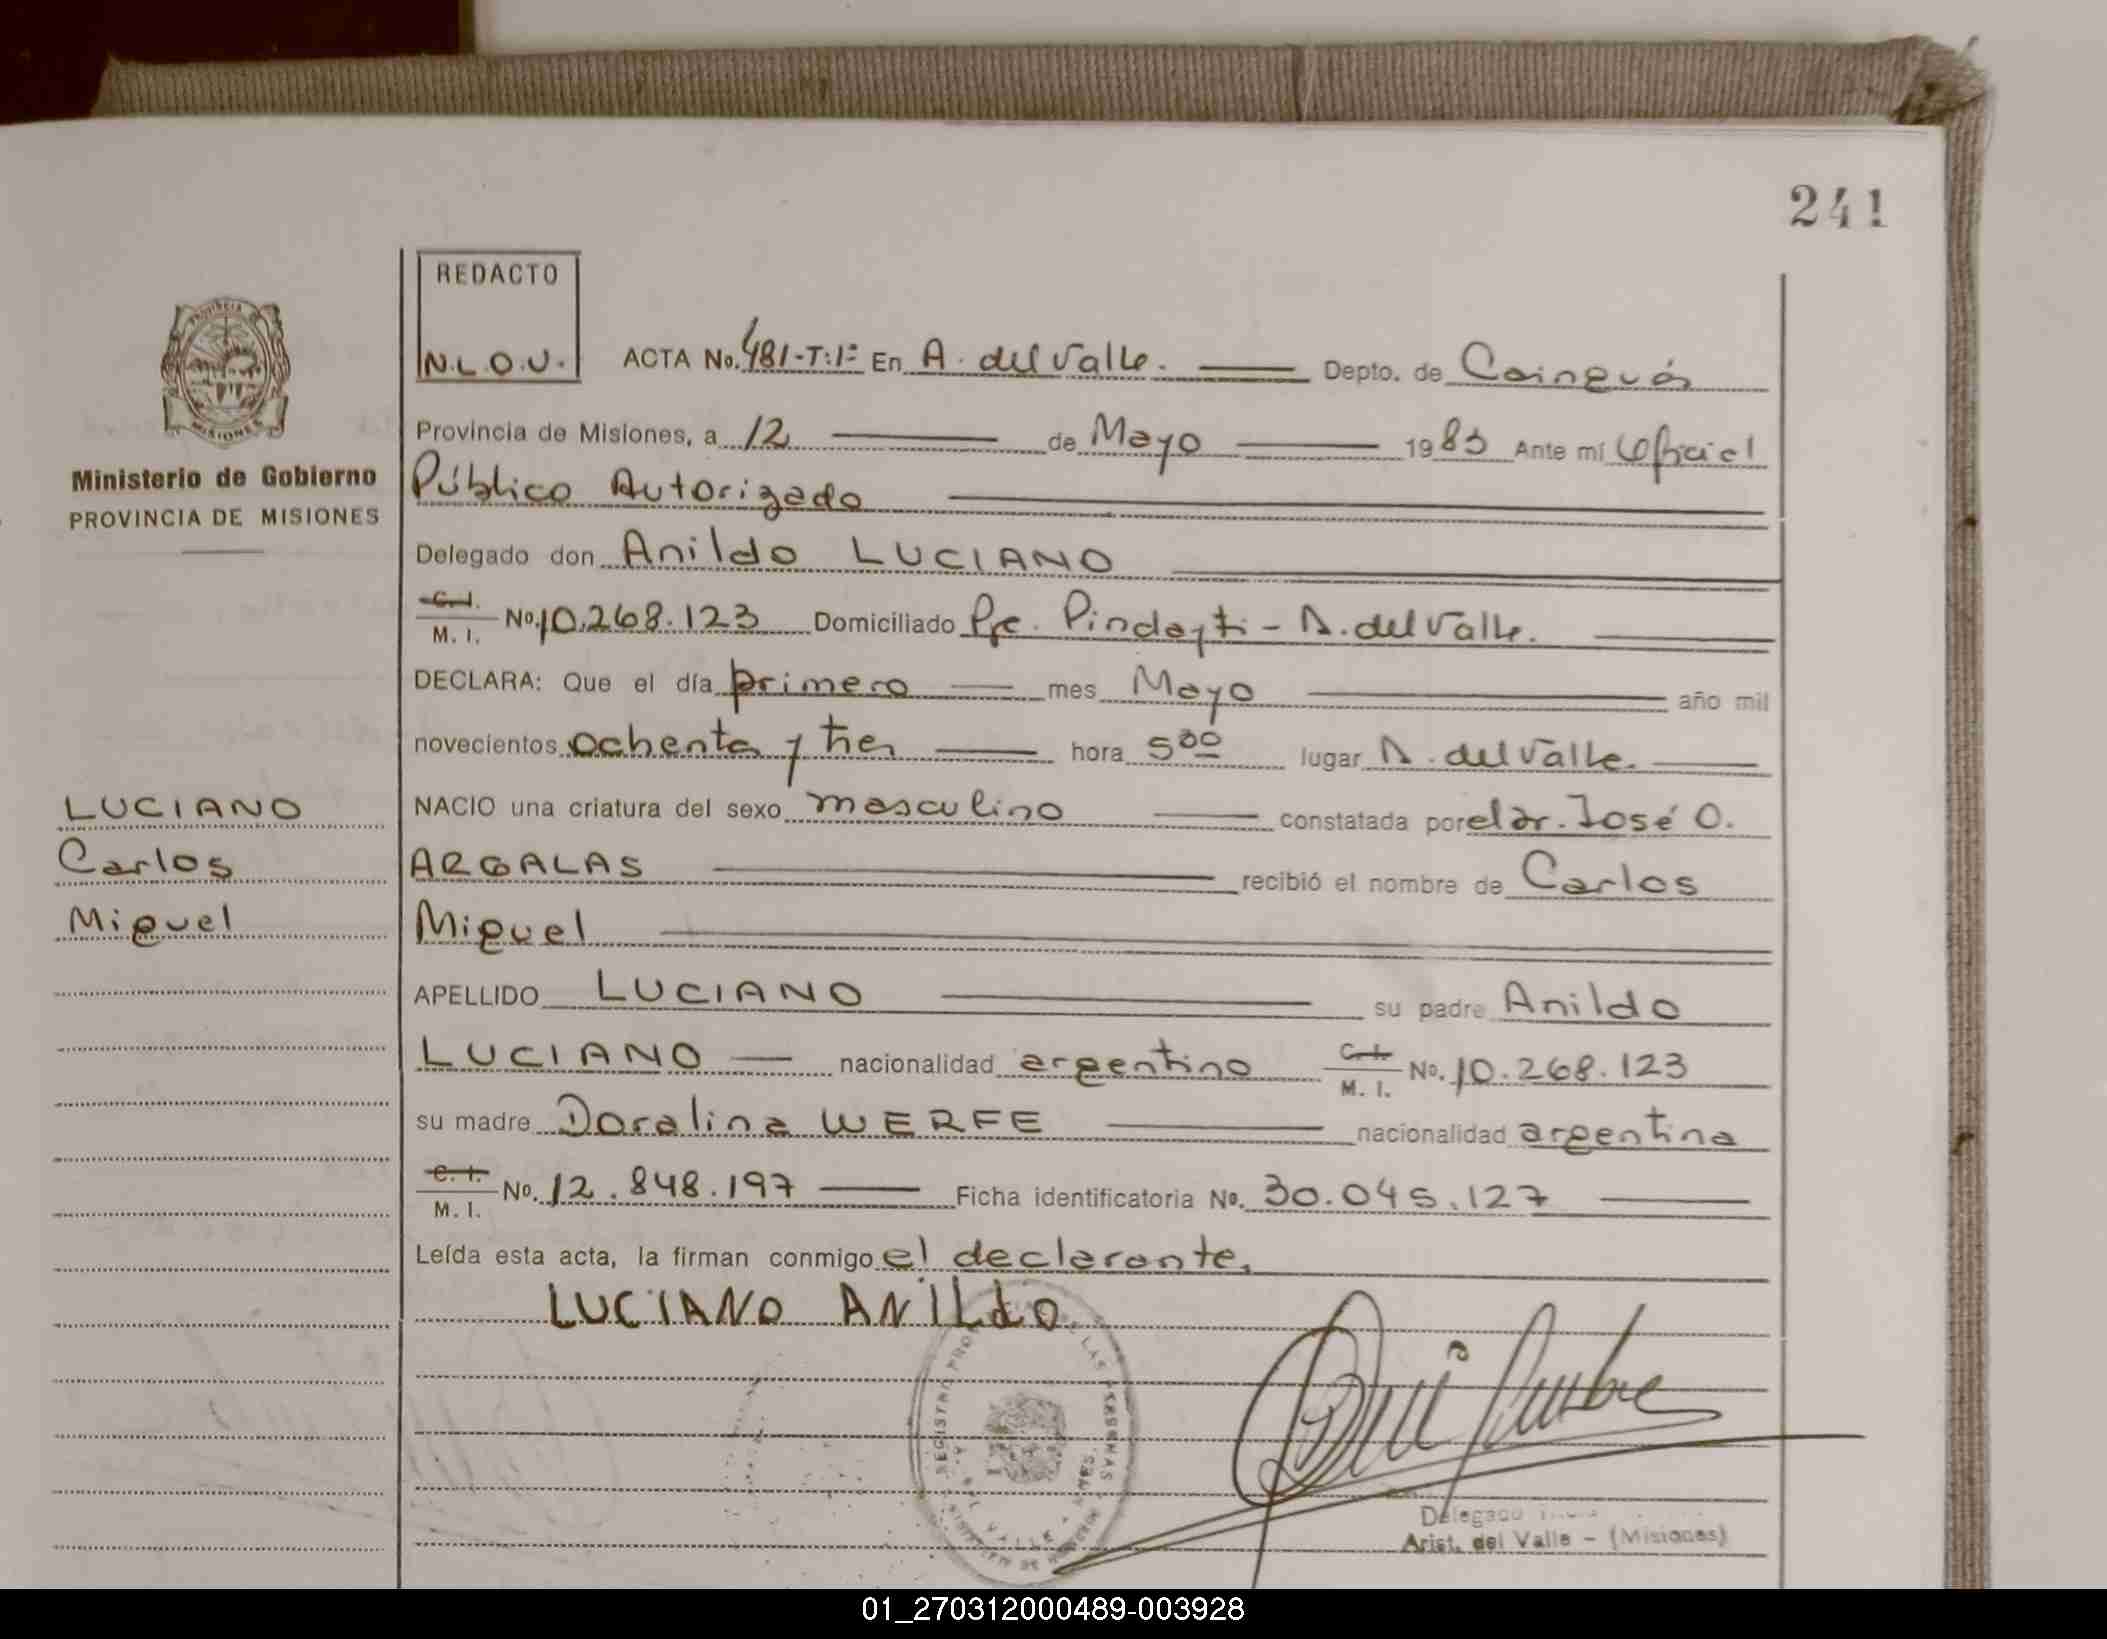 241
REDACTO
N.L.O.V.
ACTA No. 481-T:1º En A. del Valle. Depto. de Cainguás
Provincia de Misiones, a 12 de Mayo 1983 Ante mí Oficial
Público Autorizado
Ministerio de Gobierno
PROVINCIA DE MISIONES
Delegado don Anildo LUCIANO
C.I. M. I. No. 10.268.123 Domiciliado Pje. Pindayti - A. del Valle.
DECLARA: Que el día primero mes Mayo año mil
novecientos ochenta y tres hora 5 00 lugar A. del Valle.
NACIO una criatura del sexo masculino constatada por el dr. José O.
ARGALAS recibió el nombre de Carlos
Miguel
LUCIANO
Carlos
Miguel
APELLIDO LUCIANO su padre Anildo
LUCIANO nacionalidad argentino C.I. M. I. No. 10.268.123
su madre Doralina WERFE nacionalidad argentina
C. I. M. I. No. 12.848.197 Ficha identificatoria No. 30.045.127
Leída esta acta, la firman conmigo el declarante.
LUCIANO ANILdO
Delegado
Arist. del Valle - (Misiones)
01_270312000489-003928